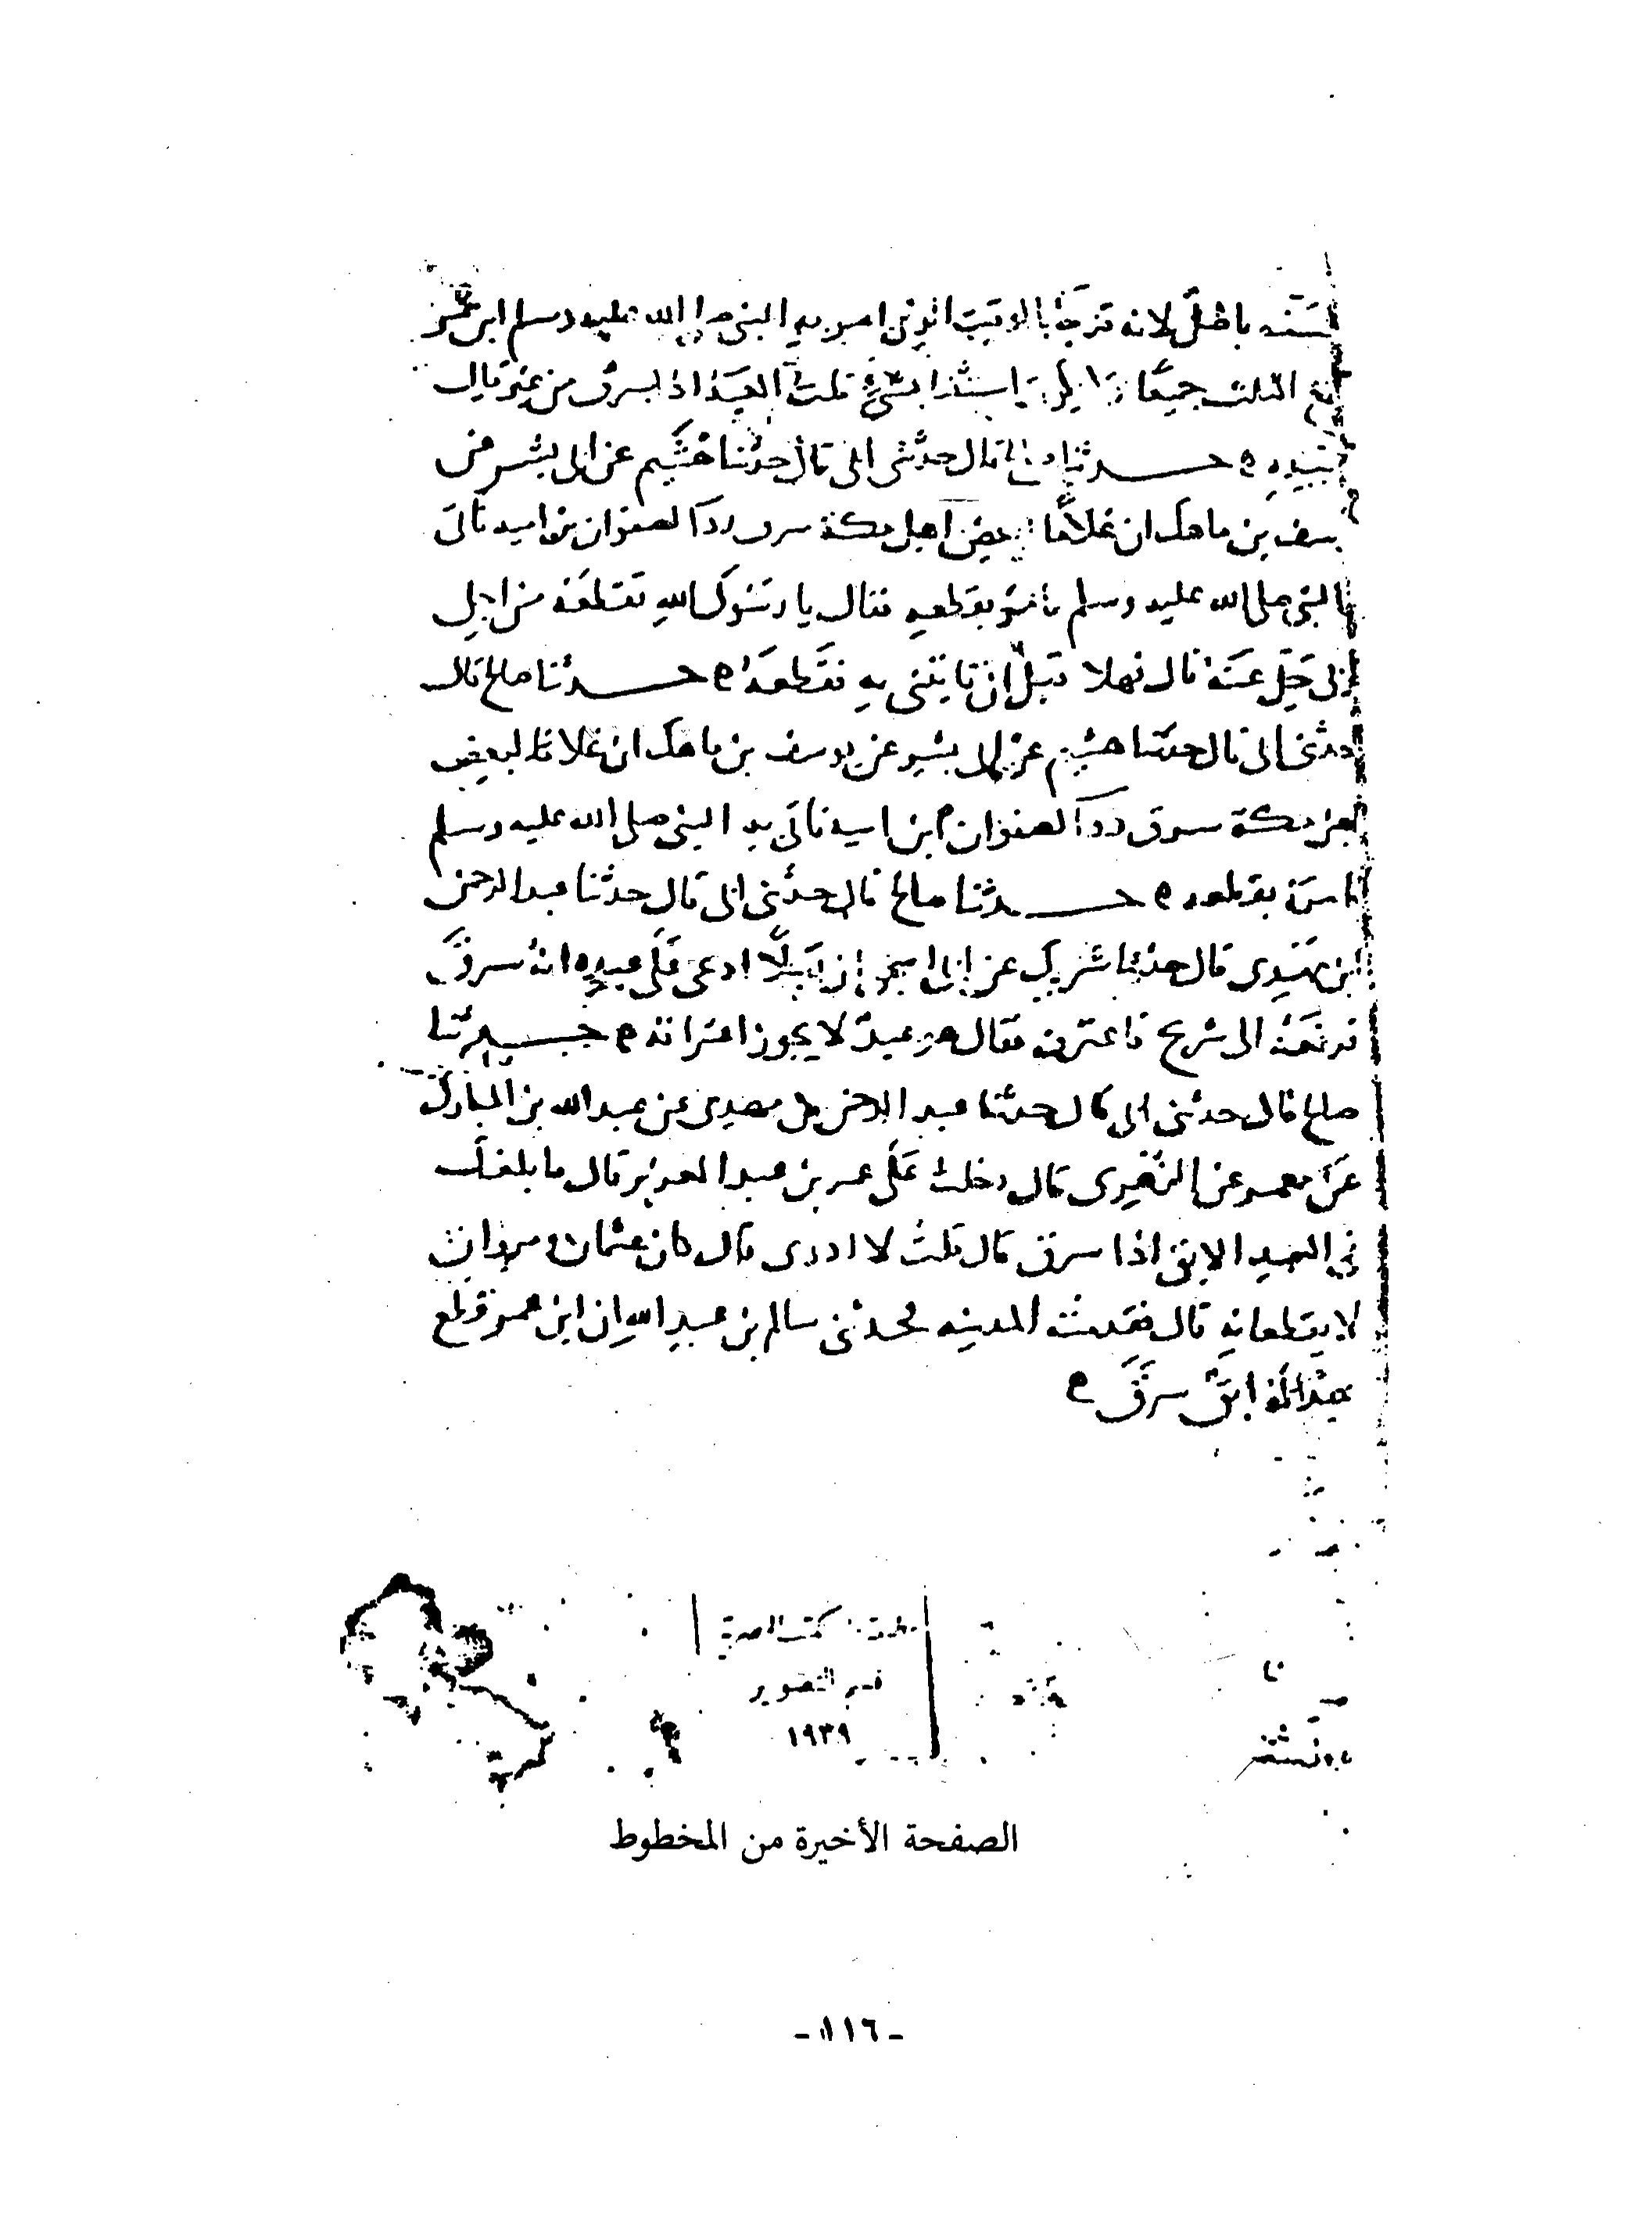 لسنه باطل لانه تزوجها بالوقت الذى امر به النبي صلى الله عليه وسلم ابن عمر
الثلث جميعا قلت العبد اذا يسرق من غير مال
سيده ه حدثنا صالح قال حدثنى ابى قال حدثنا هشيم عن ابى بشر عن
يوسف بن ماهك ان غلاما لبعض اهل مكة سرق ردا لصفوان بن اميه فاتى
النبى صلى الله عليه وسلم فامر بقطعه فقال يا رسول الله تقطعه من اجل
قال فهلا قبل ان تاتينى به فقطعه ه حدثنا صالح قال
حدثنى ابى قال حدثنا هشيم عن ابى بشر عن يوسف بن ماهك ان غلاما لبعض
اهل مكة سرق ردآ لصفوان ابن اميه فاتى به النبى صلى الله عليه وسلم
فامر بقطعه ه حدثنا صالح قال حدثنى ابى قال حدثنا عبد الرحمن
ابن مهدى قال حدثنا شريك عن ابى اسحق ان رجلا ادعى على عبده انه سرق
فرفعه الى شريح فاعترف فقال هو عبد لا يجوز اعترافه ه حدثنا
صالح قال حدثنى ابى قال حدثنا عبد الرحمن بن مهدى عن عبد الله بن المبارك
عن معمر عن الزهرى قال دخلت على عمر بن عبد العزيز قال ما بلغك
فى العبد الابق اذا سرق قال قلت لا ادرى قال كان عثمان ومروان
لا يقطعانه قال فقدمت المدينه فحدثنى سالم بن عبد الله ان ابن عمر قطع
عبدا له ابق سرق ه
الكتب المصرية
قسم التصوير
١٩٣٩
الصفحة الأخيرة من المخطوط
- ١١٦ -